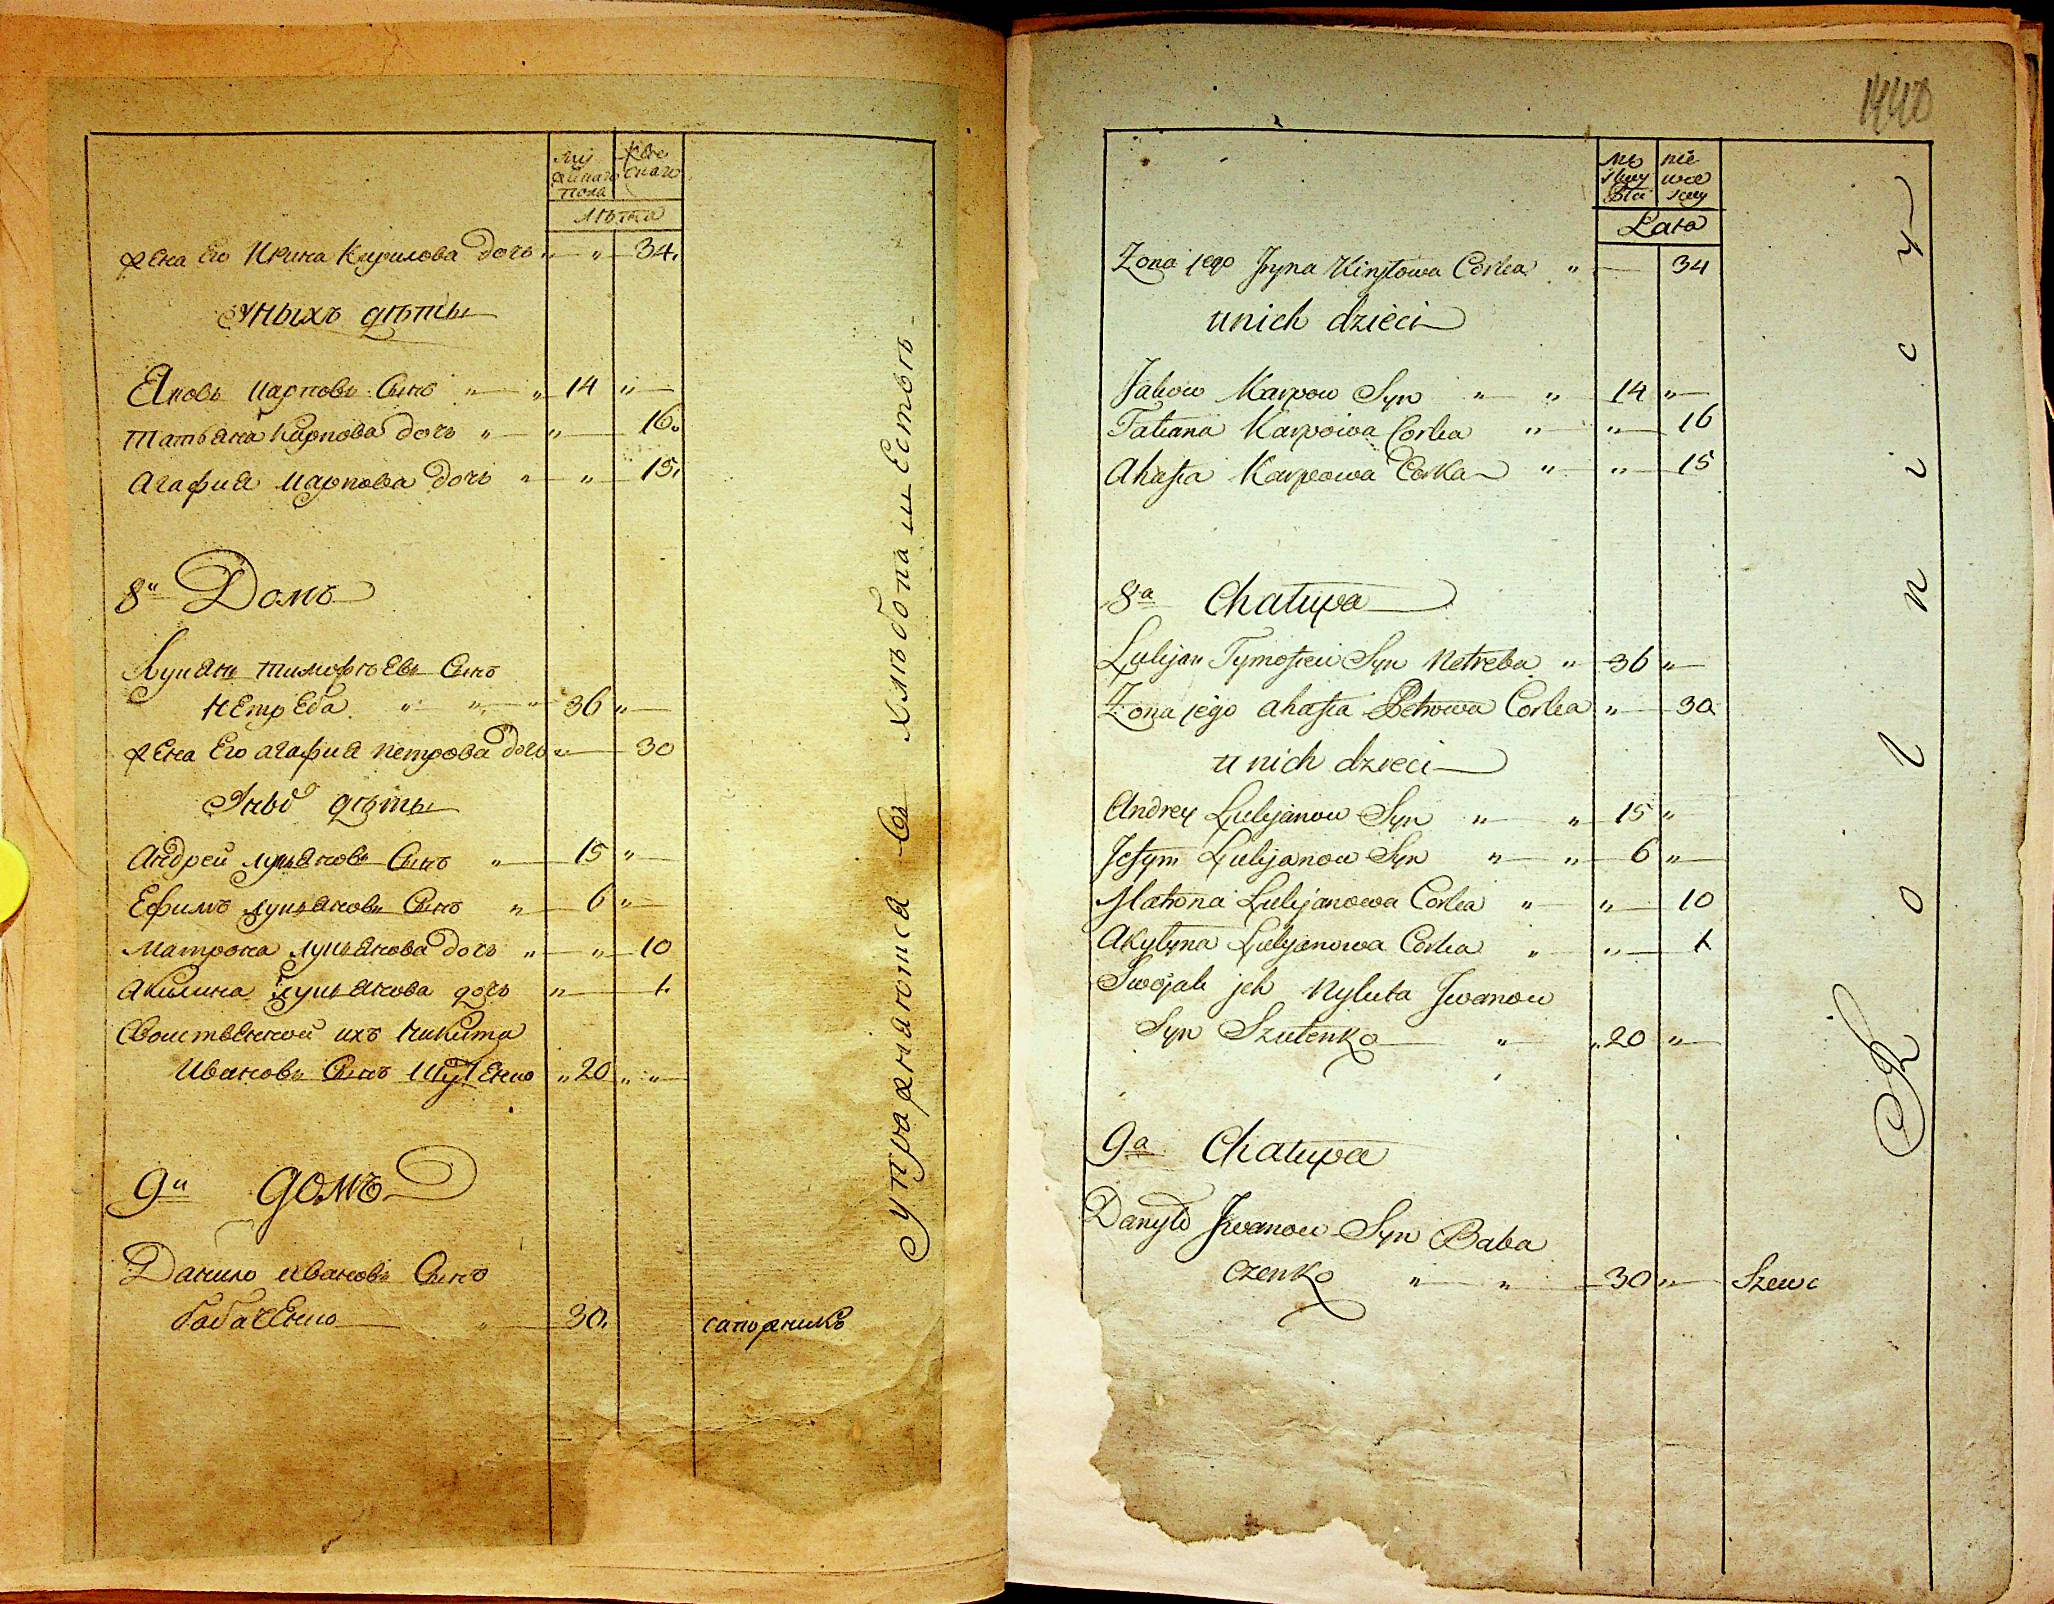 Му
жскаго
пола
Жен
скаго
лѣта
жена Его Ирина Кирилова дочь " — " — 34.
У ныхъ дѣты
Яковъ Карповъ Сынъ " — " 14 " —
Татьяна Карпова дочь " — " — 16.
Агафия Карпова дочь " — " — 15.
8й Домъ
Лукянъ тимофѣевъ Сынъ
нетреба. " — " — " 36 " —
жена Его агафия петрова дочь " — 30
У ныхъ дѣты
Андрей лукьяновъ Сынъ " — 15 " —
Ефимъ лукьяновъ Сынъ " — 6 " —
матрона лукьянова дочь " — " — 10
Акилина лукьянова дочь " — 1.
Свойственной ихъ никита
Ивановъ Сынъ Шутенко " 20 " "
9й домъ
Данило ивановъ Сынъ
бабаченко — " — 30.
сапожникъ
Упражняются въ хлѣбопашествѣ
1440
mę
skey
Płci
nie
wie
scey
Lata
Żona jego Jryna Kiryłowa Corka " — 34
u nich dzieci
Jakow Karpow Syn " — " 14 " —
Tatiana Karpowa Corka " — " — 16
Ahafia Karpowa Corka " — " — 15
8a Chałupa
Łukjan Tymofieiw Syn Netreba " 36 " —
Żona jego ahafia Petrowa Corka " — 30
u nich dzieci
Andrey Łukjanow Syn " — " 15 "
Jefym Łukijanow Syn " — " 6 " —
Matrona Łukijanowa Corka " — " — 10
Akylyna Łukjanowa Corka " — " — 1
Swojak jch Nykita Jwanow
Syn Szutenko — " — " 20 " —
9a Chałupa
Danyło Jwanow Syn Baba
czenko " — " — 30 " —
Szewc
Rolnicy